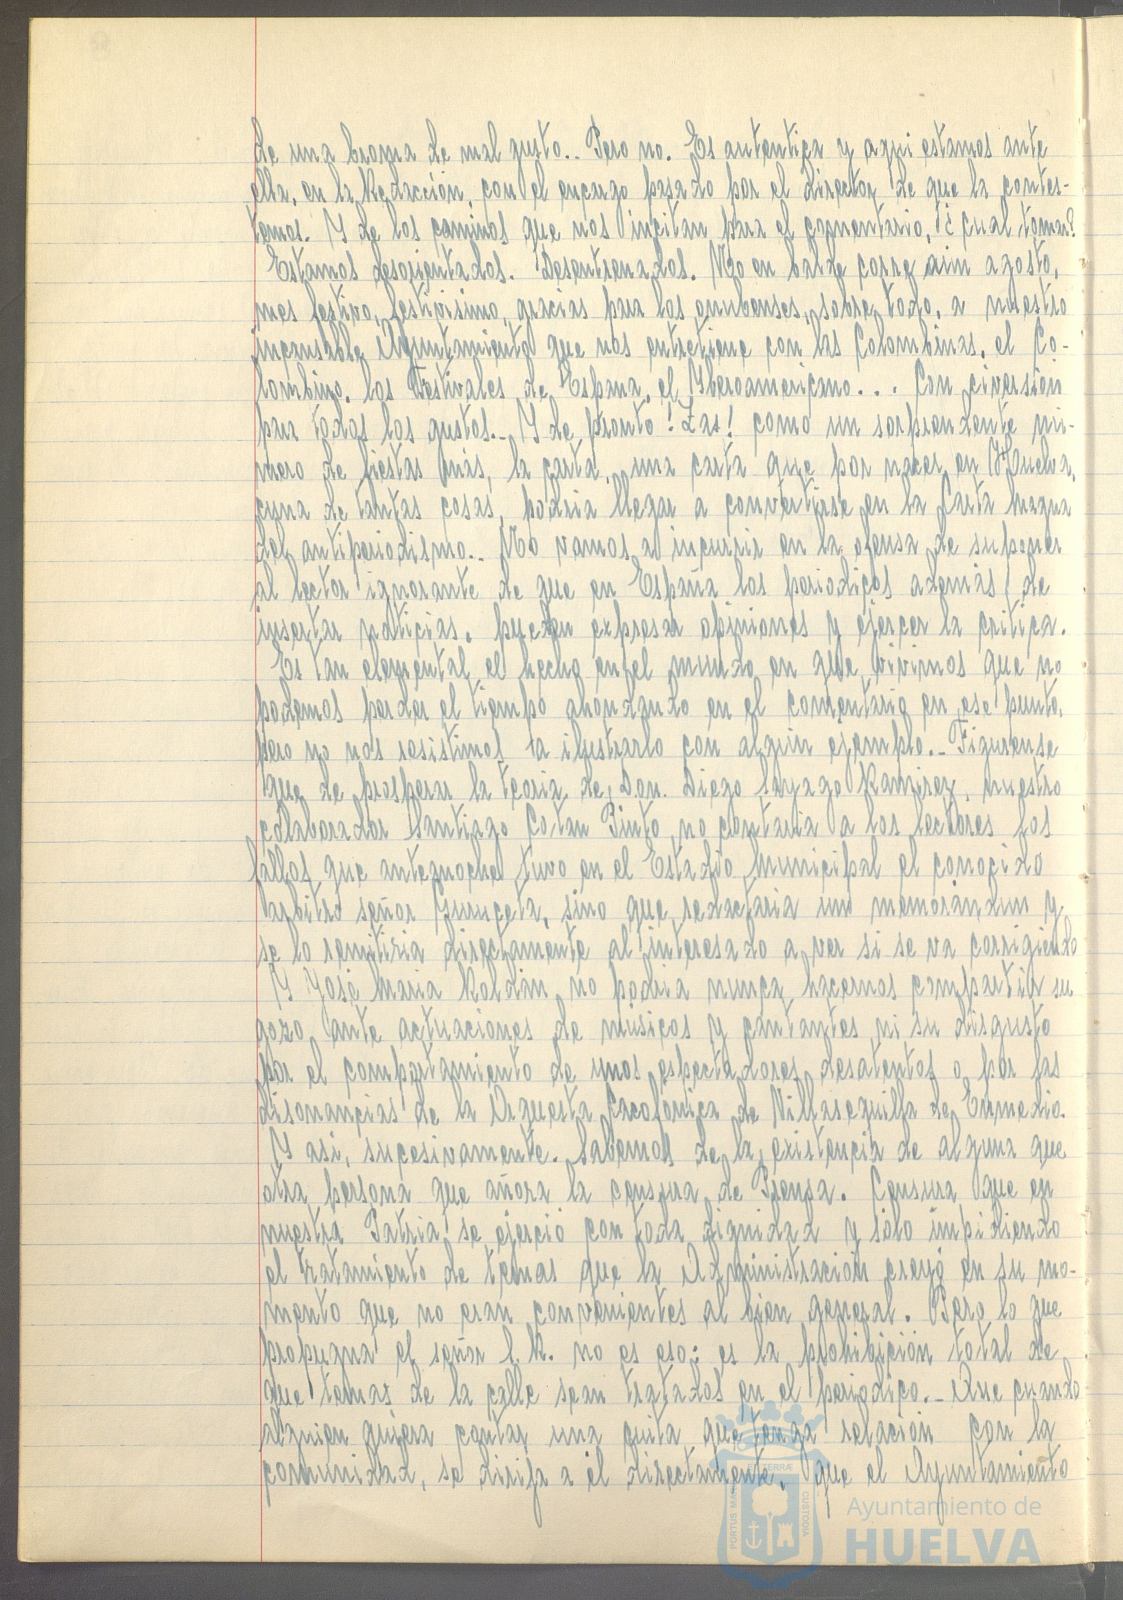 de una broma de mal gusto.. Pero no. Es autentica y aqui estamos ante
ella, en la Redacción, con el encargo pasado por el director de que la contes-
temos. Y de los caminos que nos incitan para el comentario, ¿ cual tomar?
Estamos desorientados. Desentrenados. No en balde corre aún agosto,
mes festivo, festivisimo, gracias para los onubenses, sobre todo, a nuestro
incansable Ayuntamiento que nos entretiene con las Colombinas, el Co-
lombino, los Festivales de España, el Iberoamericano... Con diversión
para todos los gustos.- Y de pronto !Zas! como un sorprendente nú-
mero de fiestas más, la carta, una carta que por nacer en Huelva,
cuna de tantas cosas, podria llegar a convertirse en la Carta Magna
del antiperiodismo.. No vamos a incurrir en la ofensa de suponer
al lector ignorante de que en España los periodicos además de
insertar noticias, pueden expresar opiniones y ejercer la critica.
Es tan elemental el hecho en el mundo en que vivimos que no
podemos perder el tiempo ahondando en el comentario en ese punto,
pero no nos resistimos a ilustrarlo con algún ejemplo.- Figurense
que de prosperar la teoria de Don. Diego Sayago Ramirez, nuestro
colaborador Santiago Cotan Pinto no contaria a los lectores los
fallos que anteanoche tuvo en el Estadio Municipal el conocido
arbitro señor Guruceta, sino que redactaria un memorándum y
se lo remitiria directamente al interesado a ver si se va corrigiendo
Y José Maria Roldán no podria nunca hacernos compartir su
gozo ante actuaciones de músicos y cantantes ni su disgusto
por el comportamiento de unos espectadores desatentos o por las
disonancias de la Orquesta Cacofónica de Villasequilla de Enmedio.
Y asi, sucesivamente. Sabemos de la existencia de alguna que
otra persona que añora la censura de Prensa. Censura que en
nuestra Patria se ejerció con toda dignidad y sólo impidiendo
el tratamiento de temas que la Administración creyó en su mo-
mento que no eran convenientes al bien general. Pero lo que
propugna el señor S.R. no es eso: es la prohibición total de
que temas de la calle sean tratados en el periodico.- Que cuando
alguien quiera contar una cuita que tenga relación con la
comunidad, se dirija a él directamente, que el Ayuntamiento
PORTUS MARIS ET TERRÆ CUSTODIA
Ayuntamiento de
HUELVA